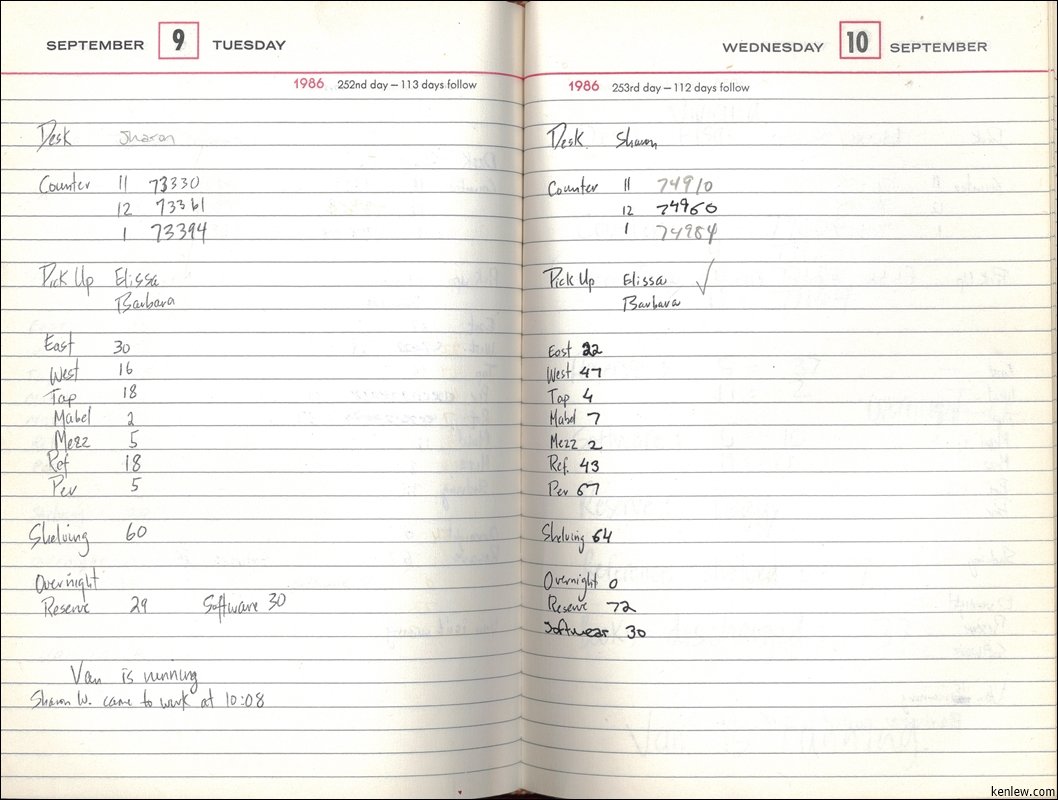 SEPTEMBER 9 TUESDAY
1986 252nd day – 113 days follow
Desk Sharon
Counter 11 73330
12 73361
1 73394
Pick Up Elissa
Barbara
East 30
West 16
Tap 18
Mabel 2
Mezz 5
Ref 18
Per 5
Shelving 60
Overnight
Reserve 29 Software 30
Van is running
Sharon W. came to work at 10:08
WEDNESDAY 10 SEPTEMBER
1986 253rd day – 112 days follow
Desk Sharon
Counter 11 74910
12 74960
1 74984
Pick Up Elissa ✓
Barbara
East 22
West 47
Tap 4
Mabel 7
Mezz 2
Ref. 43
Per 67
Shelving 64
Overnight 0
Reserve 72
Softwear 30
kenlew.com